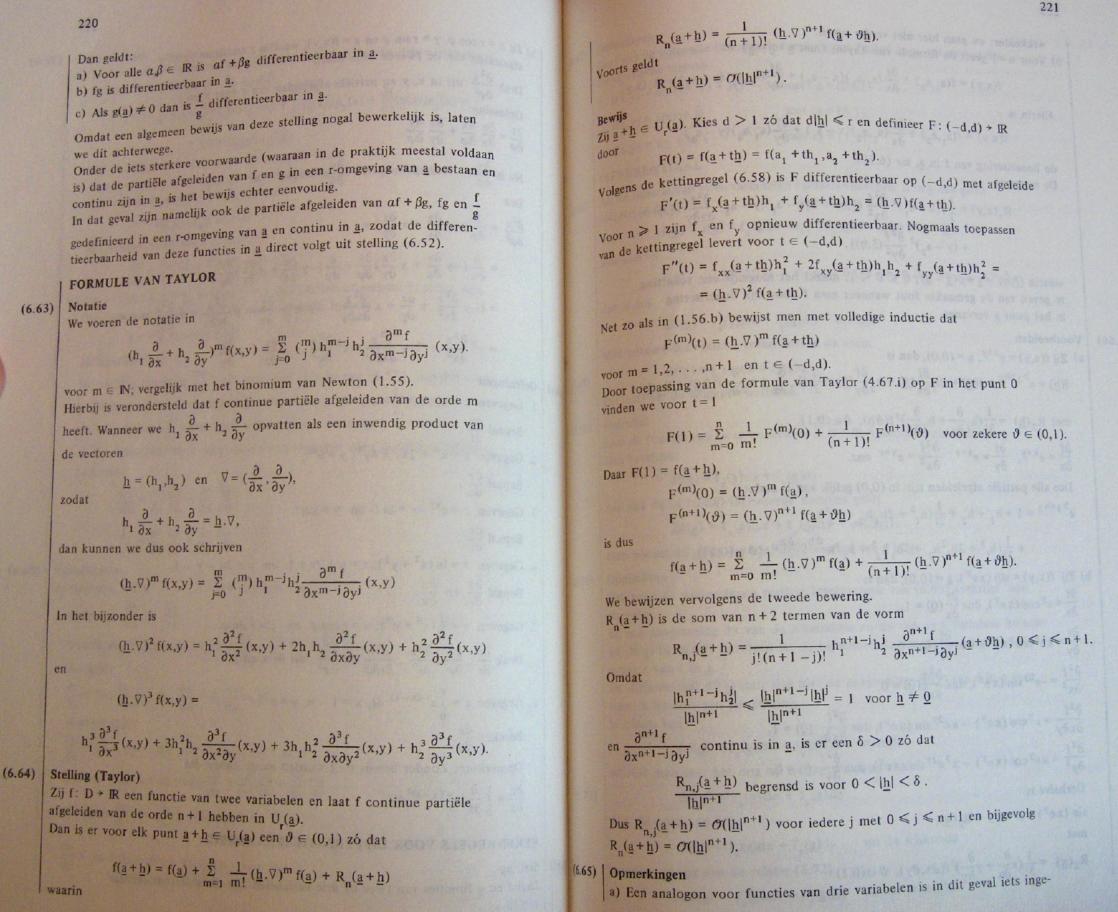 220
Dan geldt:
a) Voor alle α,β ∈ ℝ is αf + βg differentieerbaar in a̲.
b) fg is differentieerbaar in a̲.
c) Als g(a̲) ≠ 0 dan is f/g differentieerbaar in a̲.
Omdat een algemeen bewijs van deze stelling nogal bewerkelijk is, laten
we dit achterwege.
Onder de iets sterkere voorwaarde (waaraan in de praktijk meestal voldaan
is) dat de partiële afgeleiden van f en g in een r-omgeving van a̲ bestaan en
continu zijn in a̲, is het bewijs echter eenvoudig.
In dat geval zijn namelijk ook de partiële afgeleiden van αf + βg, fg en f/g
gedefinieerd in een r-omgeving van a̲ en continu in a̲, zodat de differen-
tieerbaarheid van deze functies in a̲ direct volgt uit stelling (6.52).
FORMULE VAN TAYLOR
(6.63) Notatie
We voeren de notatie in
(h₁ ∂/∂x + h₂ ∂/∂y)ᵐ f(x,y) = Σ_{j=0}^{m} (m j) h₁^{m−j} h₂^{j} ∂ᵐf/∂x^{m−j}∂y^{j} (x,y).
voor m ∈ ℕ; vergelijk met het binomium van Newton (1.55).
Hierbij is verondersteld dat f continue partiële afgeleiden van de orde m
heeft. Wanneer we h₁ ∂/∂x + h₂ ∂/∂y opvatten als een inwendig product van
de vectoren
h̲ = (h₁,h₂) en ∇ = (∂/∂x, ∂/∂y),
zodat
h₁ ∂/∂x + h₂ ∂/∂y = h̲.∇,
dan kunnen we dus ook schrijven
(h̲.∇)ᵐ f(x,y) = Σ_{j=0}^{m} (m j) h₁^{m−j} h₂^{j} ∂ᵐf/∂x^{m−j}∂y^{j} (x,y)
In het bijzonder is
(h̲.∇)² f(x,y) = h₁² ∂²f/∂x² (x,y) + 2h₁h₂ ∂²f/∂x∂y (x,y) + h₂² ∂²f/∂y² (x,y)
en
(h̲.∇)³ f(x,y) =
h₁³ ∂³f/∂x³ (x,y) + 3h₁²h₂ ∂³f/∂x²∂y (x,y) + 3h₁h₂² ∂³f/∂x∂y² (x,y) + h₂³ ∂³f/∂y³ (x,y).
(6.64) Stelling (Taylor)
Zij f: D → ℝ een functie van twee variabelen en laat f continue partiële
afgeleiden van de orde n + 1 hebben in Uᵣ(a̲).
Dan is er voor elk punt a̲ + h̲ ∈ Uᵣ(a̲) een ϑ ∈ (0,1) zó dat
f(a̲ + h̲) = f(a̲) + Σ_{m=1}^{n} 1/m! (h̲.∇)ᵐ f(a̲) + Rₙ(a̲ + h̲)
waarin
221
Rₙ(a̲ + h̲) = 1/(n + 1)! (h̲.∇)ⁿ⁺¹ f(a̲ + ϑh̲).
Voorts geldt
Rₙ(a̲ + h̲) = O(|h̲|ⁿ⁺¹).
Bewijs
Zij a̲ + h̲ ∈ Uᵣ(a̲). Kies d > 1 zó dat d|h̲| ⩽ r en definieer F: (−d,d) → ℝ
door
F(t) = f(a̲ + th̲) = f(a₁ + th₁, a₂ + th₂).
Volgens de kettingregel (6.58) is F differentieerbaar op (−d,d) met afgeleide
F′(t) = fₓ(a̲ + th̲)h₁ + f_y(a̲ + th̲)h₂ = (h̲.∇)f(a̲ + th̲).
Voor n ⩾ 1 zijn fₓ en f_y opnieuw differentieerbaar. Nogmaals toepassen
van de kettingregel levert voor t ∈ (−d,d)
F″(t) = fₓₓ(a̲ + th̲)h₁² + 2f_{xy}(a̲ + th̲)h₁h₂ + f_{yy}(a̲ + th̲)h₂² =
= (h̲.∇)² f(a̲ + th̲).
Net zo als in (1.56.b) bewijst men met volledige inductie dat
F⁽ᵐ⁾(t) = (h̲.∇)ᵐ f(a̲ + th̲)
voor m = 1,2, . . . ,n + 1 en t ∈ (−d,d).
Door toepassing van de formule van Taylor (4.67.i) op F in het punt 0
vinden we voor t = 1
F(1) = Σ_{m=0}^{n} 1/m! F⁽ᵐ⁾(0) + 1/(n + 1)! F⁽ⁿ⁺¹⁾(ϑ) voor zekere ϑ ∈ (0,1).
Daar F(1) = f(a̲ + h̲),
F⁽ᵐ⁾(0) = (h̲.∇)ᵐ f(a̲),
F⁽ⁿ⁺¹⁾(ϑ) = (h̲.∇)ⁿ⁺¹ f(a̲ + ϑh̲)
is dus
f(a̲ + h̲) = Σ_{m=0}^{n} 1/m! (h̲.∇)ᵐ f(a̲) + 1/(n + 1)! (h̲.∇)ⁿ⁺¹ f(a̲ + ϑh̲).
We bewijzen vervolgens de tweede bewering.
Rₙ(a̲ + h̲) is de som van n + 2 termen van de vorm
R_{n,j}(a̲ + h̲) = 1/j!(n + 1 − j)! h₁^{n+1−j} h₂^{j} ∂ⁿ⁺¹f/∂x^{n+1−j}∂y^{j} (a̲ + ϑh̲) , 0 ⩽ j ⩽ n + 1.
Omdat
|h₁^{n+1−j} h₂^{j}|/|h̲|ⁿ⁺¹ ⩽ |h̲|^{n+1−j} |h̲|^{j}/|h̲|ⁿ⁺¹ = 1 voor h̲ ≠ 0̲
en ∂ⁿ⁺¹f/∂x^{n+1−j}∂y^{j} continu is in a̲, is er een δ > 0 zó dat
R_{n,j}(a̲ + h̲)/|h̲|ⁿ⁺¹ begrensd is voor 0 < |h̲| < δ.
Dus R_{n,j}(a̲ + h̲) = O(|h̲|ⁿ⁺¹) voor iedere j met 0 ⩽ j ⩽ n + 1 en bijgevolg
Rₙ(a̲ + h̲) = O(|h̲|ⁿ⁺¹).
(6.65) Opmerkingen
a) Een analogon voor functies van drie variabelen is in dit geval iets inge-